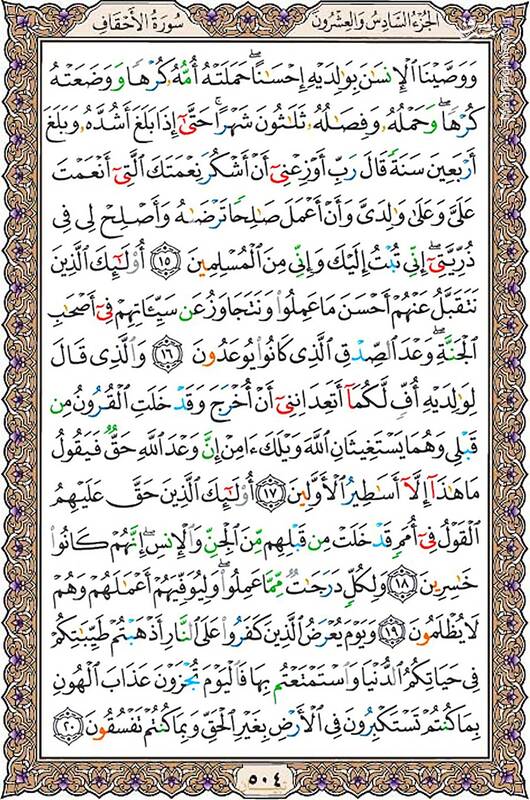 الجزء السادس والعشرون سورة الأحقاف
وَوَصَّيْنَا ٱلْإِنسَٰنَ بِوَٰلِدَيْهِ إِحْسَٰنًا ۖ حَمَلَتْهُ أُمُّهُۥ كُرْهًا وَوَضَعَتْهُ
كُرْهًا ۖ وَحَمْلُهُۥ وَفِصَٰلُهُۥ ثَلَٰثُونَ شَهْرًا ۚ حَتَّىٰٓ إِذَا بَلَغَ أَشُدَّهُۥ وَبَلَغَ
أَرْبَعِينَ سَنَةً قَالَ رَبِّ أَوْزِعْنِىٓ أَنْ أَشْكُرَ نِعْمَتَكَ ٱلَّتِىٓ أَنْعَمْتَ
عَلَىَّ وَعَلَىٰ وَٰلِدَىَّ وَأَنْ أَعْمَلَ صَٰلِحًا تَرْضَىٰهُ وَأَصْلِحْ لِى فِى
ذُرِّيَّتِىٓ ۖ إِنِّى تُبْتُ إِلَيْكَ وَإِنِّى مِنَ ٱلْمُسْلِمِينَ ١٥ أُو۟لَٰٓئِكَ ٱلَّذِينَ
نَتَقَبَّلُ عَنْهُمْ أَحْسَنَ مَا عَمِلُوا۟ وَنَتَجَاوَزُ عَن سَيِّـَٔاتِهِمْ فِىٓ أَصْحَٰبِ
ٱلْجَنَّةِ ۖ وَعْدَ ٱلصِّدْقِ ٱلَّذِى كَانُوا۟ يُوعَدُونَ ١٦ وَٱلَّذِى قَالَ
لِوَٰلِدَيْهِ أُفٍّ لَّكُمَآ أَتَعِدَانِنِىٓ أَنْ أُخْرَجَ وَقَدْ خَلَتِ ٱلْقُرُونُ مِن
قَبْلِى وَهُمَا يَسْتَغِيثَانِ ٱللَّهَ وَيْلَكَ ءَامِنْ إِنَّ وَعْدَ ٱللَّهِ حَقٌّ فَيَقُولُ
مَا هَٰذَآ إِلَّآ أَسَٰطِيرُ ٱلْأَوَّلِينَ ١٧ أُو۟لَٰٓئِكَ ٱلَّذِينَ حَقَّ عَلَيْهِمُ
ٱلْقَوْلُ فِىٓ أُمَمٍ قَدْ خَلَتْ مِن قَبْلِهِم مِّنَ ٱلْجِنِّ وَٱلْإِنسِ ۖ إِنَّهُمْ كَانُوا۟
خَٰسِرِينَ ١٨ وَلِكُلٍّ دَرَجَٰتٌ مِّمَّا عَمِلُوا۟ ۖ وَلِيُوَفِّيَهُمْ أَعْمَٰلَهُمْ وَهُمْ
لَا يُظْلَمُونَ ١٩ وَيَوْمَ يُعْرَضُ ٱلَّذِينَ كَفَرُوا۟ عَلَى ٱلنَّارِ أَذْهَبْتُمْ طَيِّبَٰتِكُمْ
فِى حَيَاتِكُمُ ٱلدُّنْيَا وَٱسْتَمْتَعْتُم بِهَا فَٱلْيَوْمَ تُجْزَوْنَ عَذَابَ ٱلْهُونِ
بِمَا كُنتُمْ تَسْتَكْبِرُونَ فِى ٱلْأَرْضِ بِغَيْرِ ٱلْحَقِّ وَبِمَا كُنتُمْ تَفْسُقُونَ ٢٠
٥٠٤